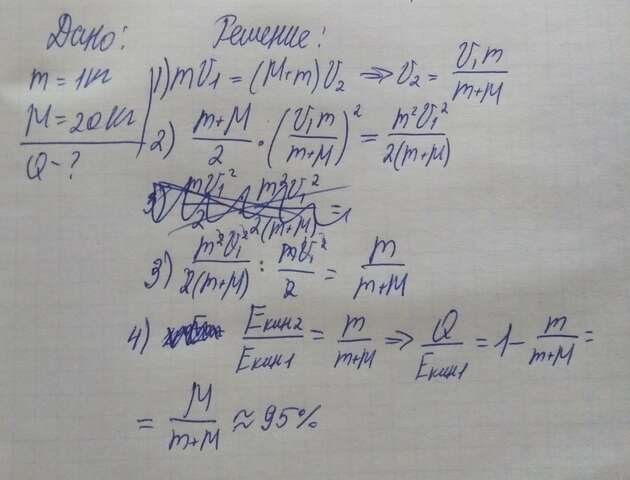 Дано:
m = 1 кг
M = 20 кг
Q - ?
Решение:
1) mV₁ = (M+m)V₂ ⇒ V₂ = V₁m / (m+M)
2) (m+M)/2 · (V₁m/(m+M))² = m²V₁² / 2(m+M)
3) m²V₁² / 2(m+M) : mV₁²/2 = m/(m+M)
4) Eкин2/Eкин1 = m/(m+M) ⇒ Q/Eкин1 = 1 - m/(m+M) =
= M/(m+M) ≈ 95%